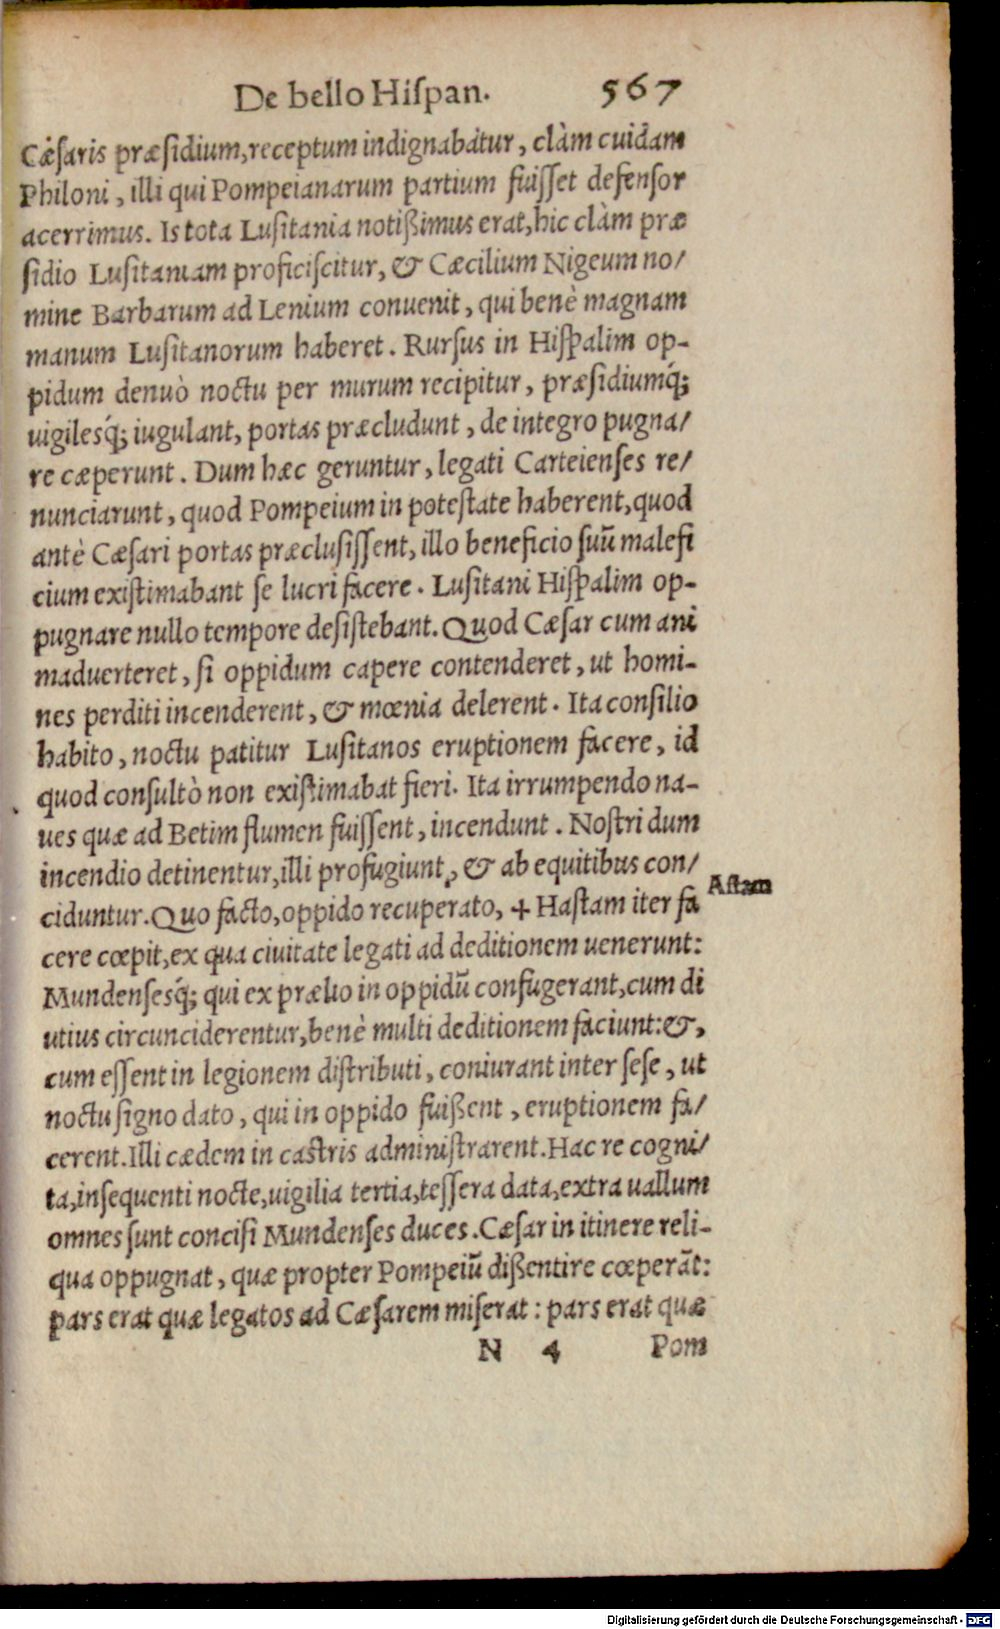 De bello Hiſpan. 567
Cæſaris præſidium, receptum indignabatur, clàm cuidam
Philoni, illi qui Pompeianarum partium fuiſſet defenſor
acerrimus. Is tota Luſitania notißimus erat, hic clàm præ
ſidio Luſitaniam proficiſcitur, & Cæcilium Nigeum no/
mine Barbarum ad Lenium conuenit, qui benè magnam
manum Luſitanorum haberet. Rurſus in Hiſpalim op-
pidum denuò noctu per murum recipitur, præſidiumq́;
uigilesq́; iugulant, portas præcludunt, de integro pugna/
re cæperunt. Dum hæc geruntur, legati Carteienſes re/
nunciarunt, quod Pompeium in poteſtate haberent, quod
antè Cæſari portas præcluſiſſent, illo beneficio ſuũ malefi
cium exiſtimabant ſe lucri facere. Luſitani Hiſpalim op-
pugnare nullo tempore deſiſtebant. Quod Cæſar cum ani
maduerteret, ſi oppidum capere contenderet, ut homi-
nes perditi incenderent, & mœnia delerent. Ita conſilio
habito, noctu patitur Luſitanos eruptionem facere, id
quod conſultò non exiſtimabat fieri. Ita irrumpendo na-
ues quæ ad Betim flumen fuiſſent, incendunt. Noſtri dum
incendio detinentur, illi profugiunt, & ab equitibus con/
ciduntur. Quo facto, oppido recuperato, + Haſtam iter fa
Aſtam
cere cœpit, ex qua ciuitate legati ad deditionem uenerunt:
Mundenſesq́; qui ex prælio in oppidũ confugerant, cum di
utius circunciderentur, benè multi deditionem faciunt: &,
cum eſſent in legionem diſtributi, coniurant inter ſeſe, ut
noctu ſigno dato, qui in oppido fuißent, eruptionem fa/
cerent. Illi cædem in caſtris adminiſtrarent. Hac re cogni/
ta, inſequenti nocte, uigilia tertia, teſſera data, extra uallum
omnes ſunt conciſi Mundenſes duces. Cæſar in itinere reli-
qua oppugnat, quæ propter Pompeiũ dißentire cœperãt:
pars erat quæ legatos ad Cæſarem miſerat: pars erat quæ
N 4 Pom
Digitalisierung gefördert durch die Deutsche Forschungsgemeinschaft - DFG